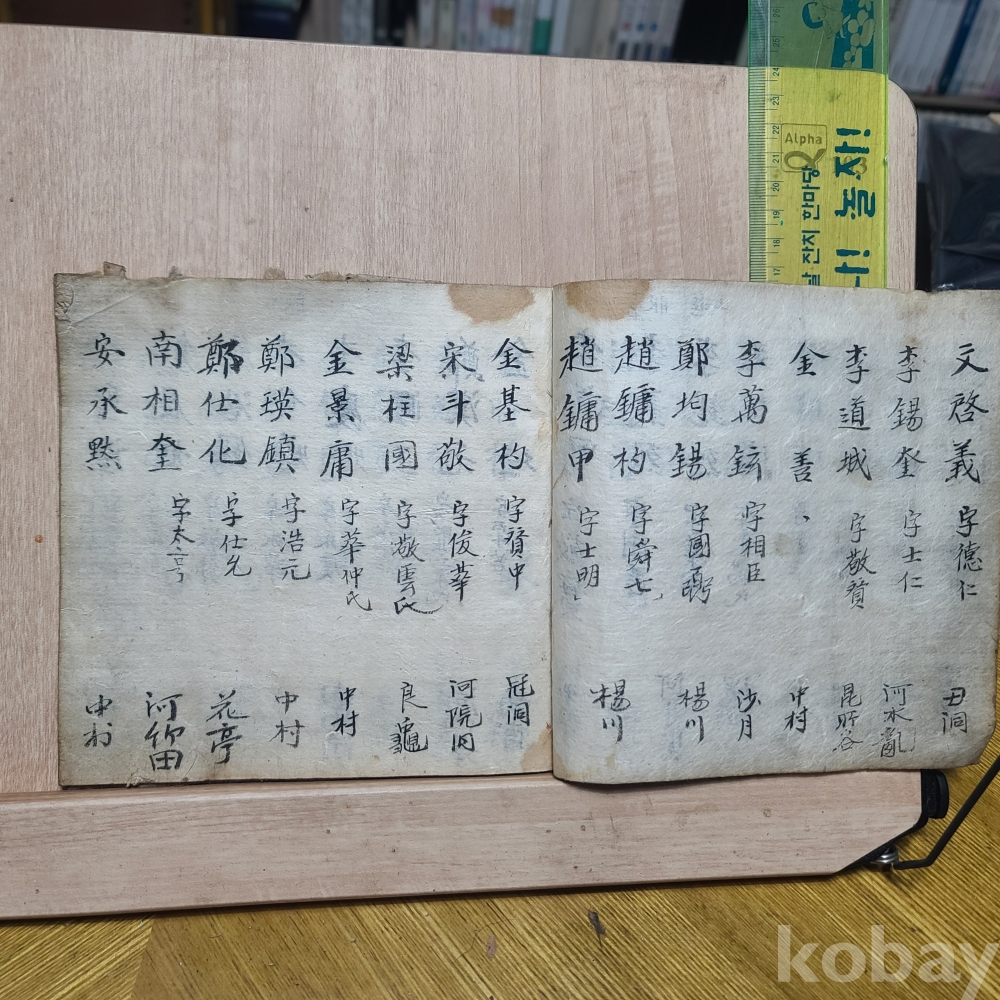 文啓義 字德仁 丑洞
李錫奎 字士仁 河水
李道城 字敬賛 昆
金善 中村
李萬鉉 字相臣 沙月
鄭均錫 字國弼 楊川
趙鏞杓 字舜七
趙鏞甲 字士明 楊川
金基杓 字賛中 冠洞
宋斗敬 字俊華 河院洞
梁柱國 字敬雲氏 良
金景庸 字華仲氏 中村
鄭瑛鎮 字浩元 中村
鄭仕化 字仕允 花亭
南相奎 字太亨 河
安承黙 中村
Alpha
놀자!
잔치 한마당
kobay